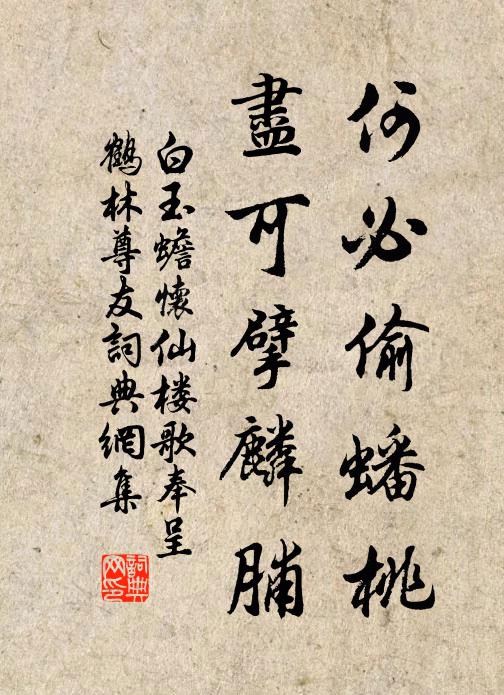 何必偷蟠桃
盡可擘麟脯
白玉蟾懷仙楼歌奉呈
鶴林尊友詞典網集
詞典网印